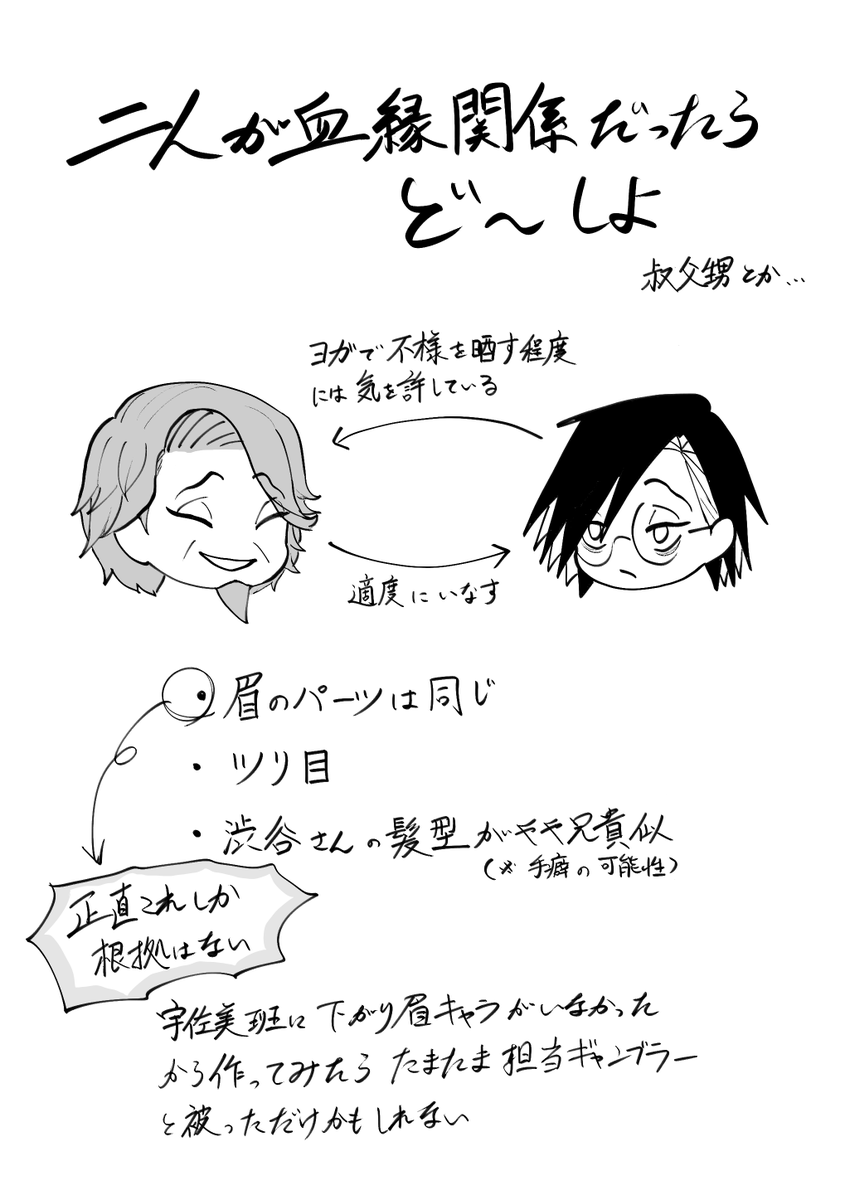 二人が血縁関係だったら
ど〜しよ
叔父甥とか…
ヨガで不様を晒す程度
には気を許している
適度にいなす
・眉のパーツは同じ
・ツリ目
・渋谷さんの髪型がやや兄貴似
(※手癖の可能性)
正直これしか
根拠はない
宇佐美班に下がり眉キャラがいなかった
から作ってみたら たまたま担当ギャンブラー
と被っただけかもしれない